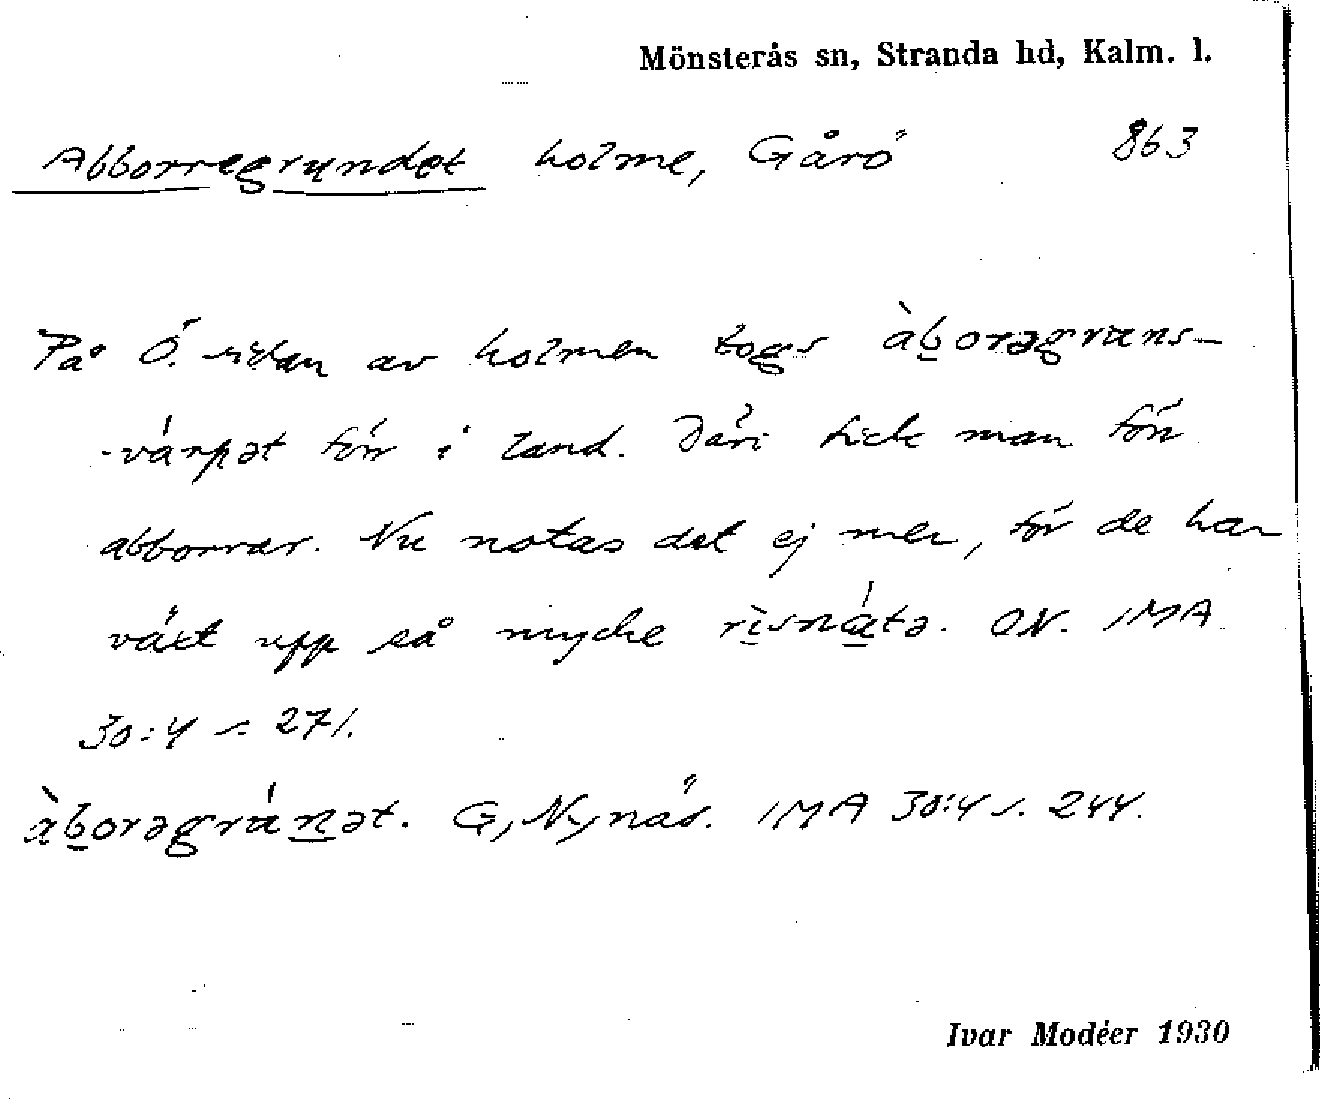 Mönsterås sn, Stranda hd, Kalm. l.
Abborregrundet holme, Gårö 863
På Ö. sidan av holmen togs àb̲orəgruns-
-várpət förr i land. Däri fick man förr
abborrar. Nu notas det ej mer, för de har
växt upp så mycke rìs̲ná̲tə. ON. IMA
30:4 s. 271.
àb̲orəgrún̲ət. G, Nynäs. IMA 30:4 s. 244.
Ivar Modéer 1930